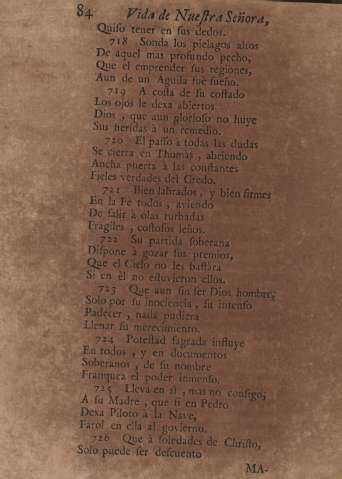 84 Vida de Nuestra Señora,
Quiso tener en sus dedos.
718 Sonda los pielagos altos
De aquel mas profundo pecho,
Que el emprender sus regiones,
Aun de un Aguila fue sueño.
719 A costa de su costado
Los ojos le dexa abiertos
Dios, que aun glorioso no huye
Sus heridas à un remedio.
720 El passo à todas las dudas
Se cierra en Thomás, abriendo
Ancha puerta à las constantes
Fieles verdades del Credo.
721 Bien labrados, y bien firmes
En la Fè todos, aviendo
De salir à olas turbadas
Fragiles, costosos leños.
722 Su partida soberana
Dispone à gozar sus premios,
Que el Cielo no les bastàra
Si en èl no estuvieron ellos.
723 Que aun sin ser Dios hombre,
Solo por su inocencia, su intenso
Padecer, nada pudiera
Llenar su merecimento.
724 Potestad sagrada influye
En todos, y en documentos
Soberanos, de su nombre
Franquea el poder inmenso.
725 Lleva en sì, mas no consigo,
A su Madre, que si en Pedro
Dexa Piloto à la Nave,
Farol en ella al govierno.
726 Que à soledades de Christo,
Solo puede ser descuento
MA-